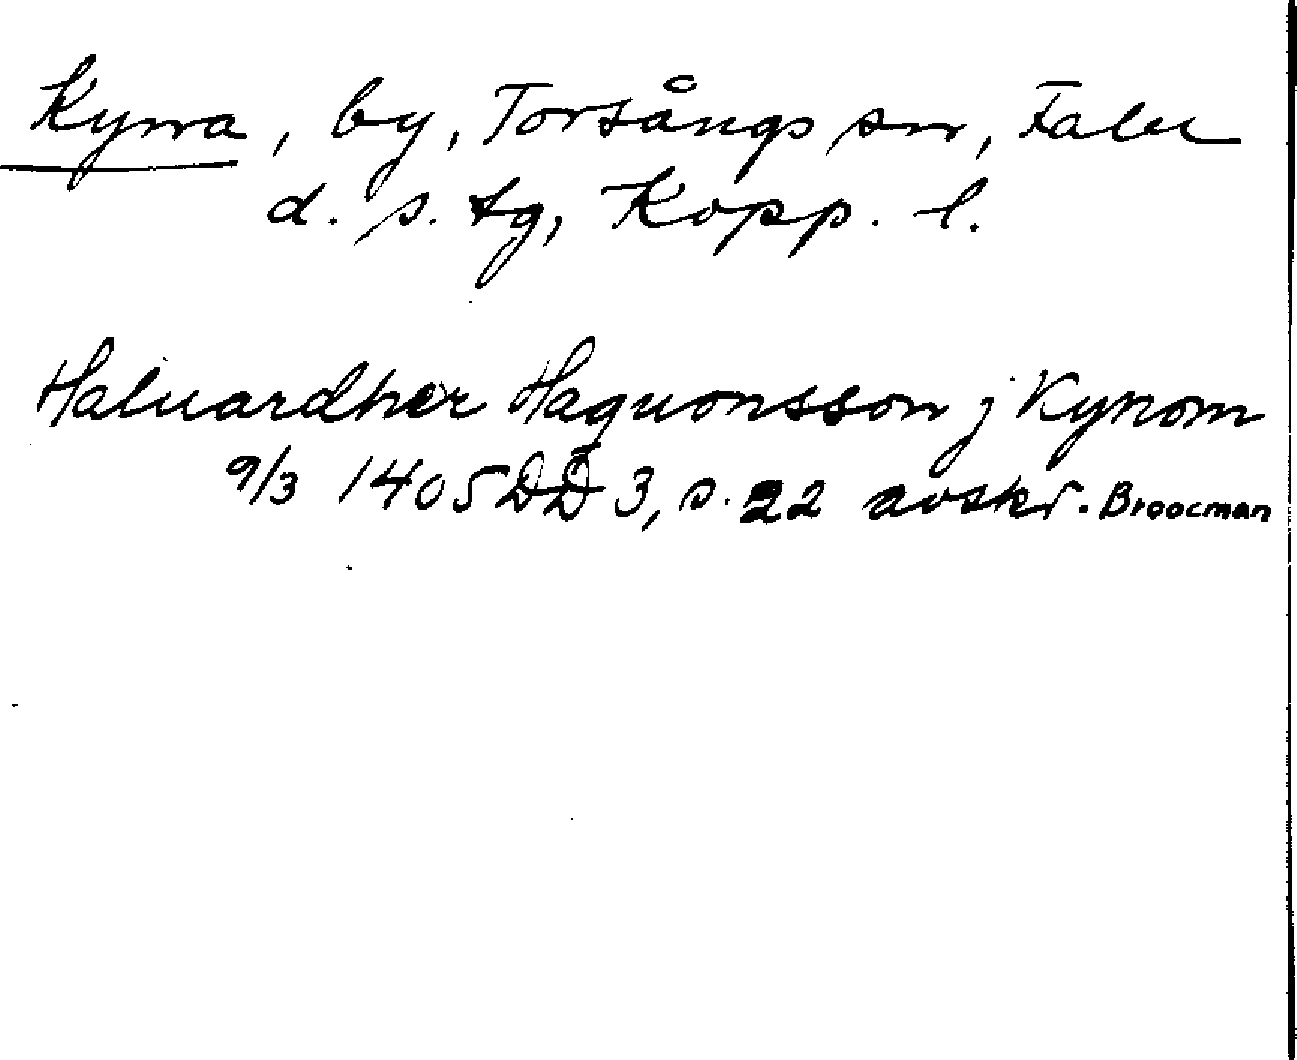 Kyna, by, Torsångs sn, Falu
d. s. tg, Kopp. l.
Haluardher Haquonsson j Kynom
9/3 1405 DD 3, s. 22 avskr. Broocman